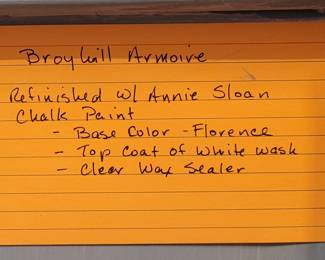 Broyhill Armoire
Refinished w/ Annie Sloan
Chalk Paint
- Base Color - Florence
- Top Coat of White Wash
- Clear Wax Sealer